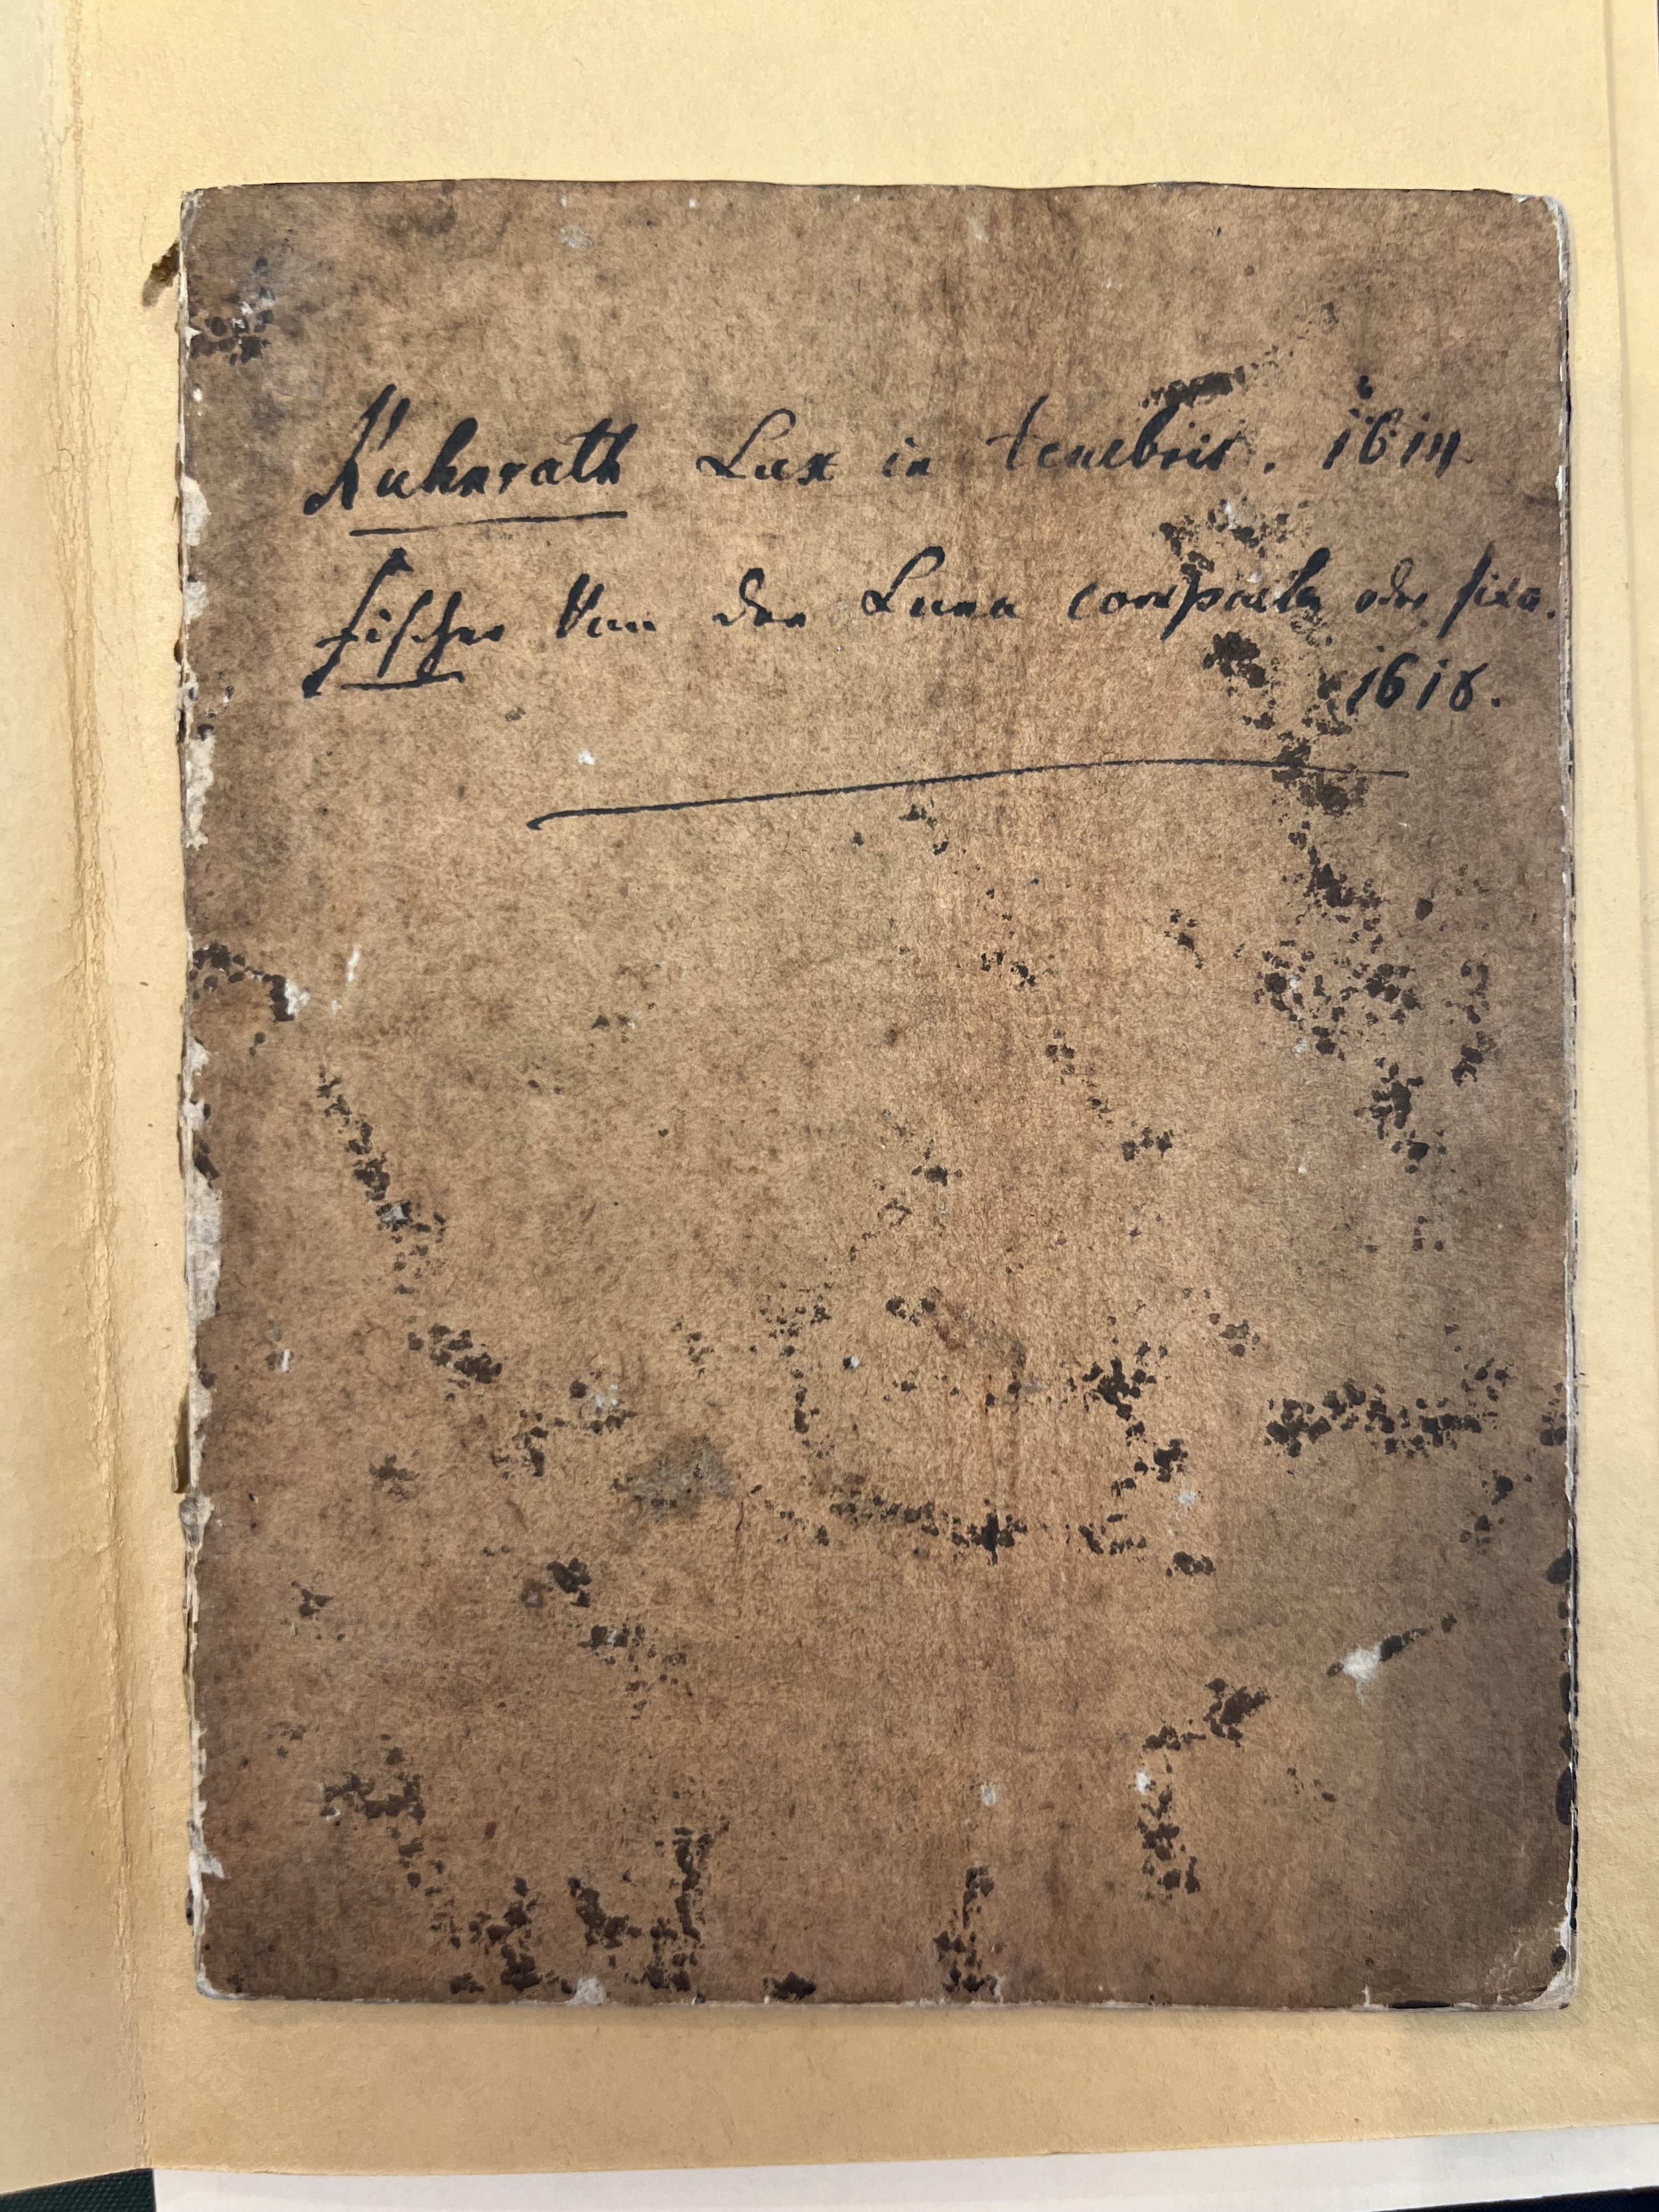 Kuhnrath Lux in tenebris. 1614.
Fischer Von der Luna compacta oder fixa.
1618.